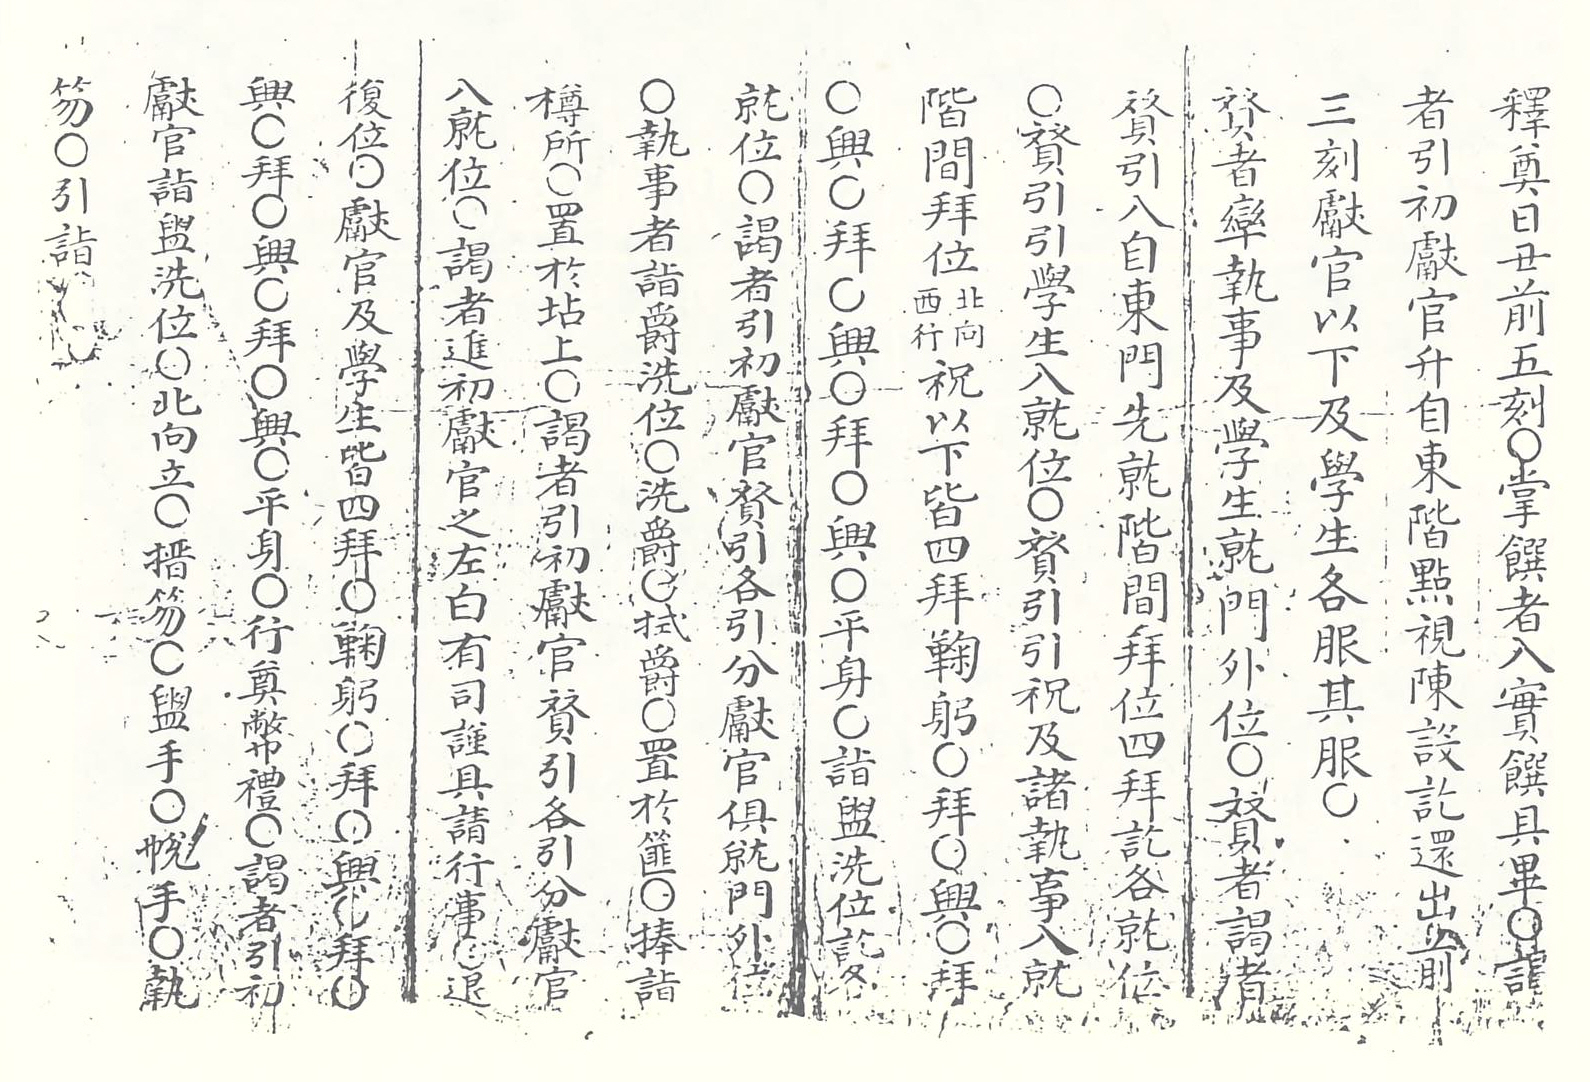 釋奠日丑前五刻○掌饌者入實饌具畢○謁
者引初獻官升自東階點視陳設訖還出○前
三刻獻官以下及學生各服其服○
贊者率執事及學生就門外位○贊者謁者
贊引入自東門先就階間拜位四拜訖各就位
○贊引引學生入就位○贊引引祝及諸執事入就
階間拜位北向西行祝以下皆四拜鞠躬○拜○興○拜
○興○拜○興○拜○興○平身○詣盥洗位訖各
就位○謁者引初獻官贊引各引分獻官俱就門外位
○執事者詣爵洗位○洗爵○拭爵○置於篚○捧詣
樽所○置於坫上○謁者引初獻官贊引各引分獻官
入就位○謁者進初獻官之左白有司謹具請行事○退
復位○獻官及學生皆四拜○鞠躬○拜○興○拜○
興○拜○興○拜○興○平身○行奠幣禮○謁者引初
獻官詣盥洗位○北向立○搢笏○盥手○帨手○執
笏○引詣